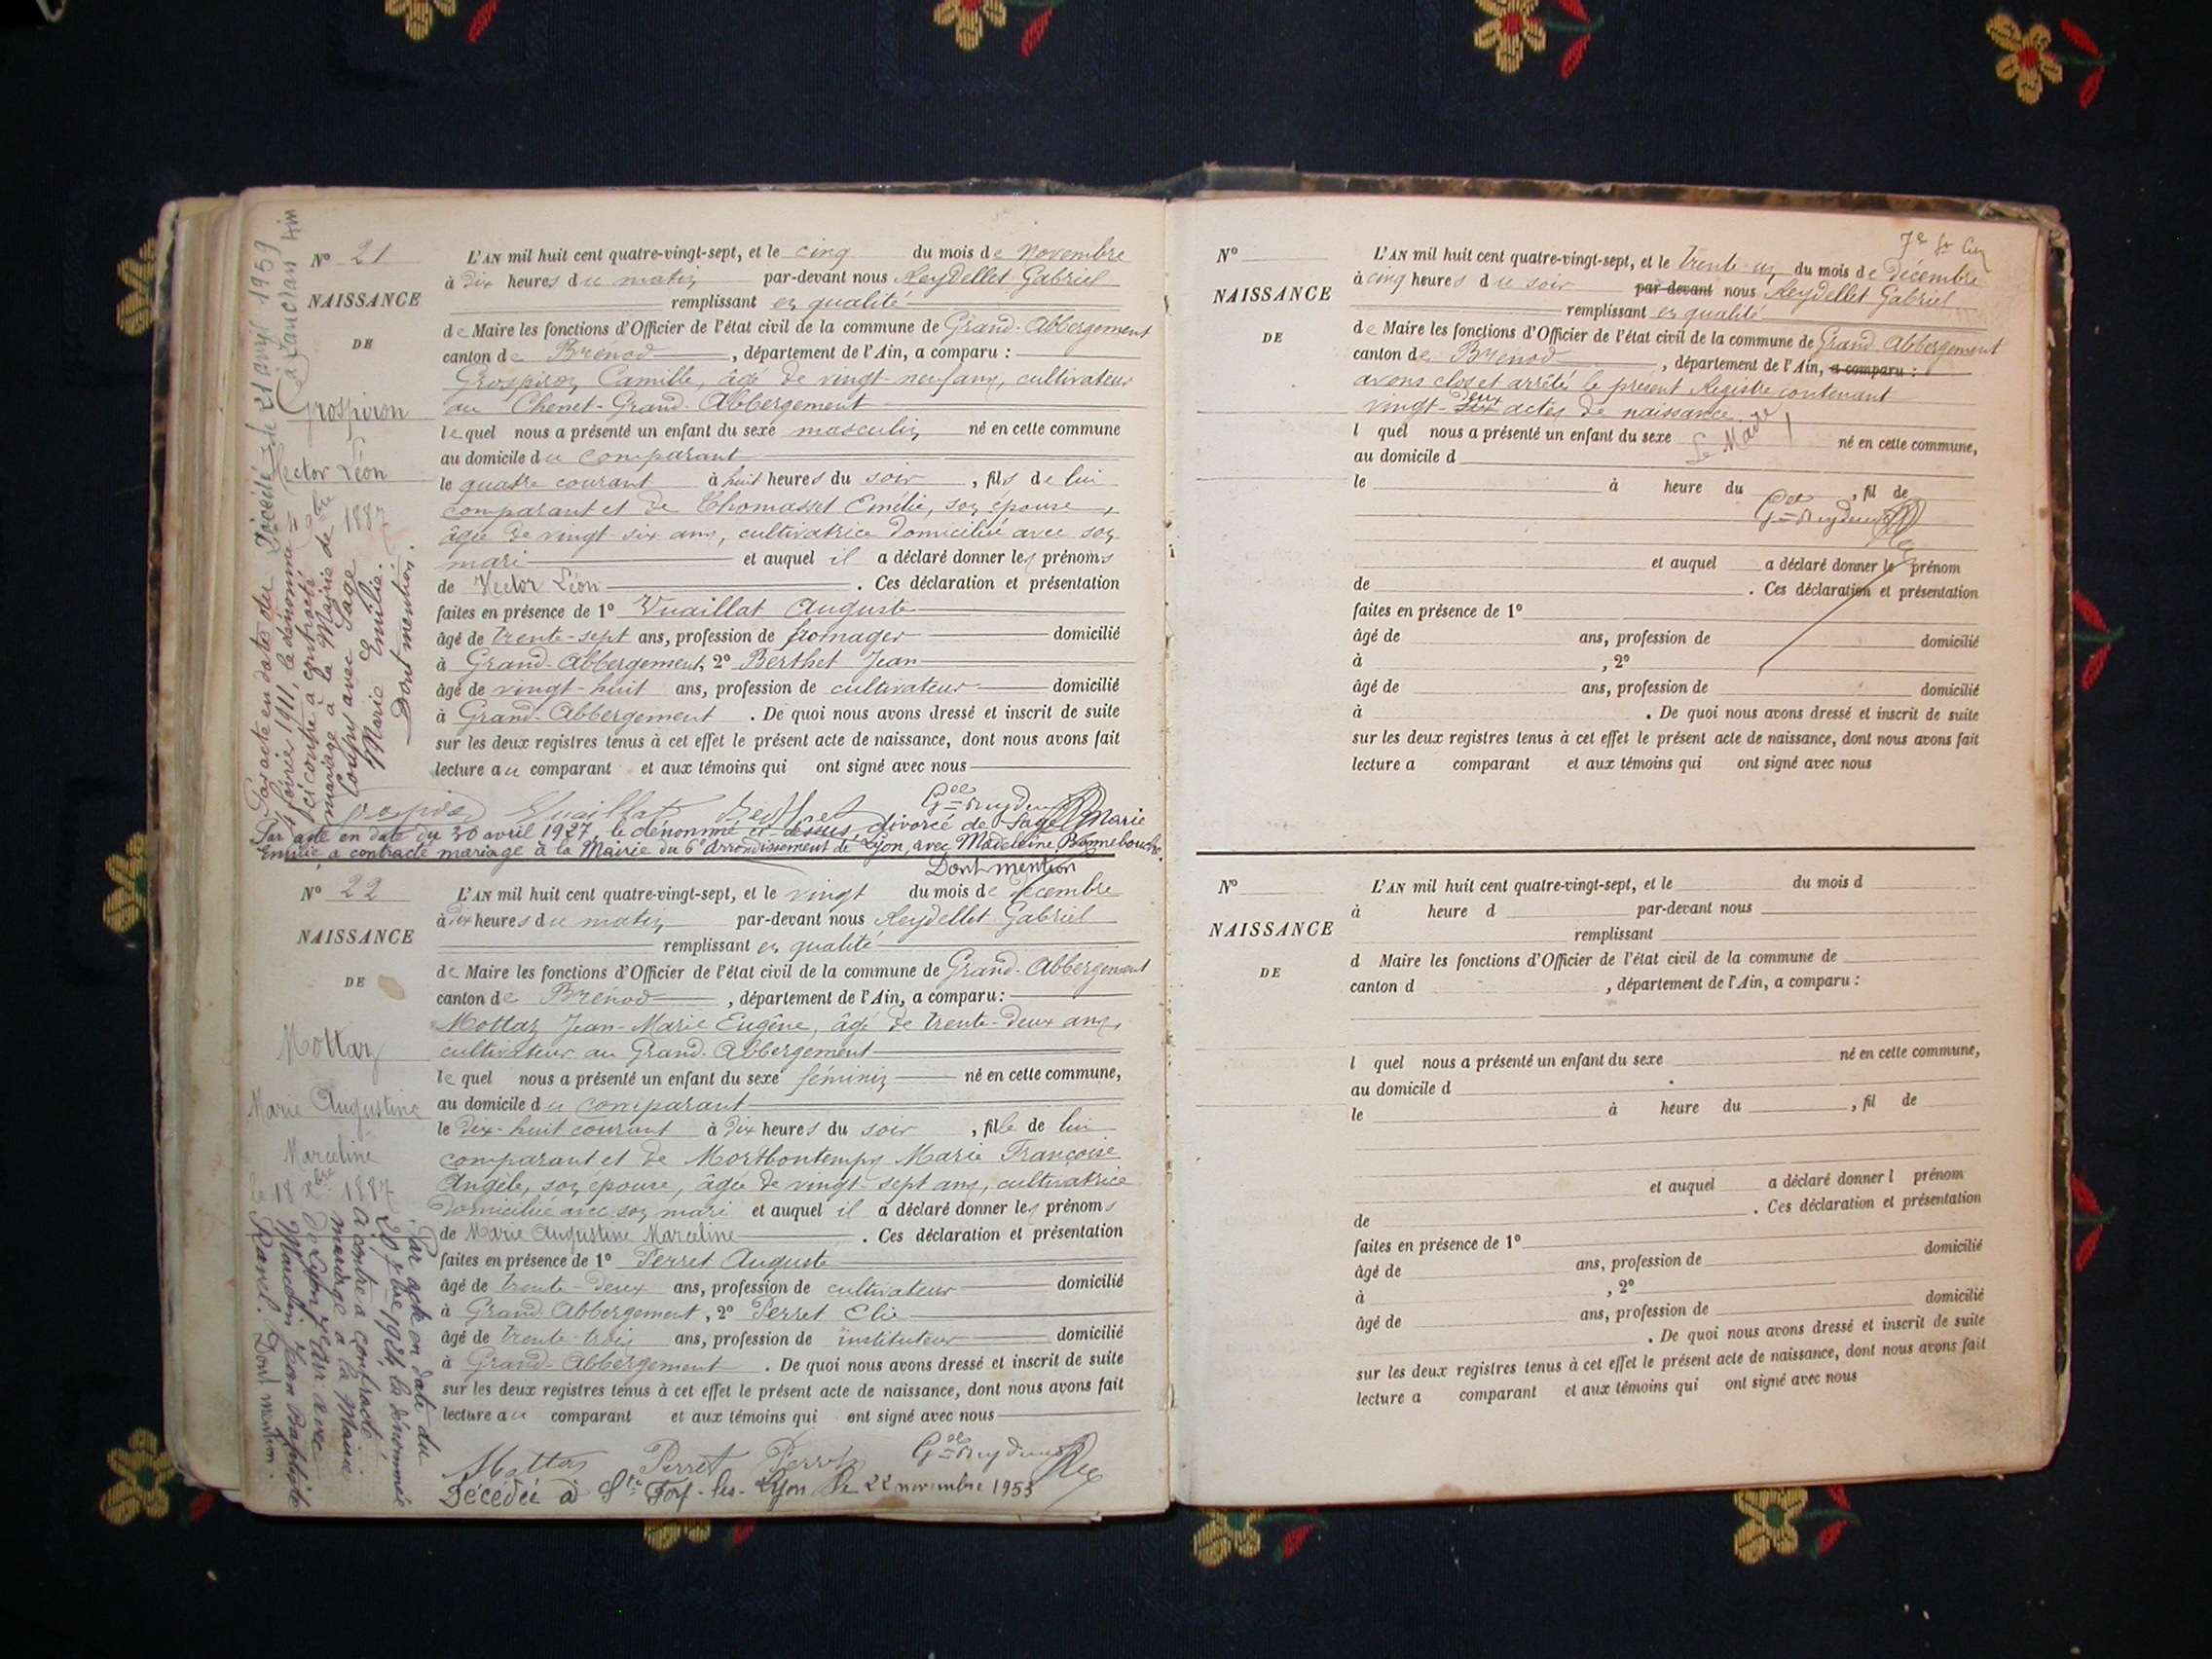 N° 21
NAISSANCE
DE
Grospiron
Hector Léon
1887
L'AN mil huit cent quatre-vingt-sept, et le cinq du mois de Novembre
à dix heures du matin par-devant nous Reydellet Gabriel
remplissant en qualité
de Maire les fonctions d'Officier de l'état civil de la commune de Grand-Abbergement
canton de Brénod, département de l'Ain, a comparu :
Grospiron Camille, âgé de vingt-neuf ans, cultivateur
au Chenet-Grand-Abbergement
lequel nous a présenté un enfant du sexe masculin né en cette commune
au domicile du comparant
le quatre courant à huit heures du soir, fils de lui
comparant et de Thomasset Emélie, son épouse,
âgée de vingt-six ans, cultivatrice domiciliée avec son
mari et auquel il a déclaré donner les prénoms
de Hector Léon. Ces déclaration et présentation
faites en présence de 1° Vuaillat Auguste
âgé de trente-sept ans, profession de fromager domicilié
à Grand-Abbergement, 2° Berthet Jean
âgé de vingt-huit ans, profession de cultivateur domicilié
à Grand-Abbergement. De quoi nous avons dressé et inscrit de suite
sur les deux registres tenus à cet effet le présent acte de naissance, dont nous avons fait
lecture au comparant et aux témoins qui ont signé avec nous
Vuaillat Berthet
Par acte en date du
février 1911, le dénommé
ci contre a contracté
mariage à la Mairie de
avec Sage
Marie Emilie.
Dont mention.
Décédé le 21 1959
à Lancrans Ain
Par acte en date du 30 avril 1927, le dénommé ci-dessus, divorcé de Sage Marie
Emilie a contracté mariage à la Mairie du 6e Arrondissement de Lyon, avec Madeleine Bonnebouche.
Dont mention
N° 22
NAISSANCE
DE
Mottaz
Marie Augustine
Marceline
le 18 Xbre 1887
L'AN mil huit cent quatre-vingt-sept, et le vingt du mois de décembre
à dix heures du matin par-devant nous Reydellet Gabriel
remplissant en qualité
de Maire les fonctions d'Officier de l'état civil de la commune de Grand-Abbergement
canton de Brénod, département de l'Ain, a comparu :
Mottaz Jean-Marie Eugène, âgé de trente-deux ans,
cultivateur au Grand-Abbergement
lequel nous a présenté un enfant du sexe féminin né en cette commune,
au domicile du comparant
le dix-huit courant à dix heures du soir, fille de lui
comparant et de Mortbontemps Marie Françoise
Angèle, son épouse, âgée de vingt-sept ans, cultivatrice
domiciliée avec son mari et auquel il a déclaré donner les prénoms
de Marie Augustine Marceline. Ces déclaration et présentation
faites en présence de 1° Perret Auguste
âgé de trente-deux ans, profession de cultivateur domicilié
à Grand-Abbergement, 2° Perret Elie
âgé de trente-trois ans, profession de instituteur domicilié
à Grand-Abbergement. De quoi nous avons dressé et inscrit de suite
sur les deux registres tenus à cet effet le présent acte de naissance, dont nous avons fait
lecture au comparant et aux témoins qui ont signé avec nous
Mottaz Perret Perret
Par acte en date du
20 7bre 1924 la dénommée
ci contre a contracté
mariage à la Mairie
de Lyon, avec
Mardin Jean Baptiste
Dont mention.
Décédée à Ste Foy-lès-Lyon le 22 novembre 1953
N°
NAISSANCE
DE
L'AN mil huit cent quatre-vingt-sept, et le trente-un du mois de décembre
à cinq heures du soir par-devant nous Reydellet Gabriel
remplissant en qualité
de Maire les fonctions d'Officier de l'état civil de la commune de Grand-Abbergement
canton de Brénod, département de l'Ain, a comparu :
avons clos et arrêté le présent Registre contenant
vingt-deux actes de naissance.
l quel nous a présenté un enfant du sexe né en cette commune,
Le Maire
au domicile d
le à heure du , fil de
et auquel a déclaré donner le prénom
de . Ces déclaration et présentation
faites en présence de 1°
âgé de ans, profession de domicilié
à , 2°
âgé de ans, profession de domicilié
à . De quoi nous avons dressé et inscrit de suite
sur les deux registres tenus à cet effet le présent acte de naissance, dont nous avons fait
lecture a comparant et aux témoins qui ont signé avec nous
N°
NAISSANCE
DE
L'AN mil huit cent quatre-vingt-sept, et le du mois d
à heure d par-devant nous
remplissant
d Maire les fonctions d'Officier de l'état civil de la commune de
canton d , département de l'Ain, a comparu :
l quel nous a présenté un enfant du sexe né en cette commune,
au domicile d
le à heure du , fil de
et auquel a déclaré donner l prénom
de . Ces déclaration et présentation
faites en présence de 1°
âgé de ans, profession de domicilié
à , 2°
âgé de ans, profession de domicilié
. De quoi nous avons dressé et inscrit de suite
sur les deux registres tenus à cet effet le présent acte de naissance, dont nous avons fait
lecture a comparant et aux témoins qui ont signé avec nous